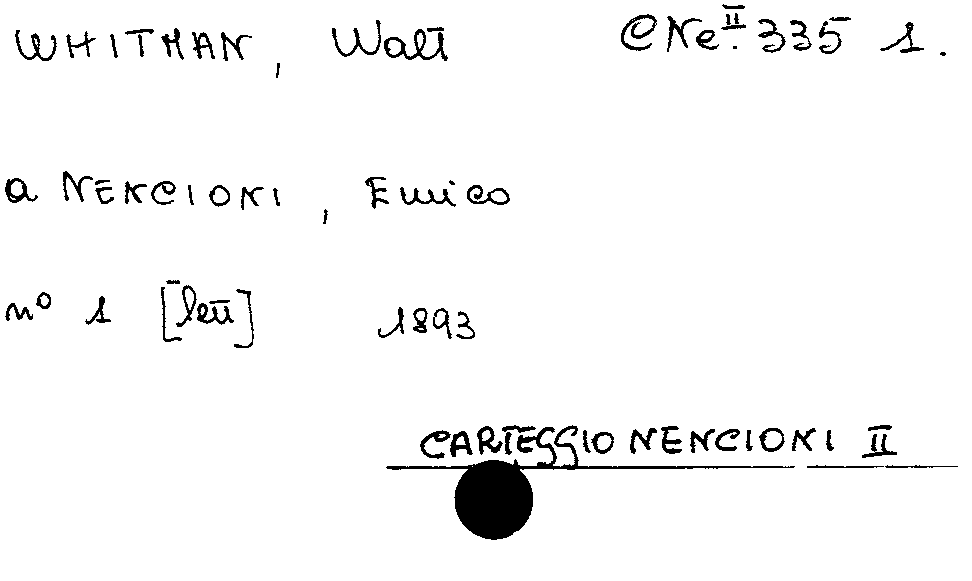 WHITMAN, Walt CNe.II 335 1.
a NENCIONI, Enrico
nº 1 [lett] 1893
CARTEGGIO NENCIONI II